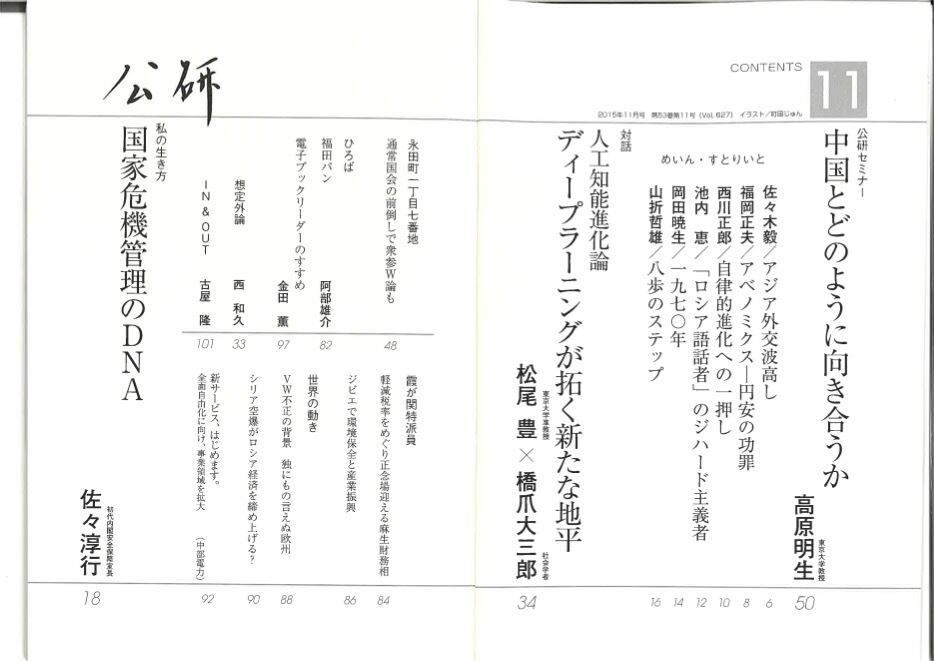 CONTENTS
11
2015年11月号 第53巻第11号(Vol. 627) イラスト／町田じゅん
公研セミナー
中国とどのように向き合うか
東京大学教授
高原明生
50
めいん・すとりいと
佐々木毅／アジア外交波高し
6
福岡正夫／アベノミクス―円安の功罪
8
西川正郎／自律的進化への一押し
10
池内 恵／「ロシア語話者」のジハード主義者
12
岡田暁生／一九七〇年
14
山折哲雄／八歩のステップ
16
対話
人工知能進化論
ディープラーニングが拓く新たな地平
東京大学准教授
松尾 豊×橋爪大三郎
社会学者
34
公研
永田町一丁目七番地
通常国会の前倒しで衆参W論も
48
ひろば
福田パン
阿部雄介
82
電子ブックリーダーのすすめ
金田 薫
97
想定外論
西 和久
33
IN&OUT
古屋 隆
101
霞が関特派員
軽減税率をめぐり正念場迎える麻生財務相
84
ジビエで環境保全と産業振興
86
世界の動き
VW不正の背景 独にもの言えぬ欧州
88
シリア空爆がロシア経済を締め上げる?
90
新サービス、はじめます。
全面自由化に向け、事業領域を拡大
(中部電力)
92
私の生き方
国家危機管理のDNA
初代内閣安全保障室長
佐々淳行
18